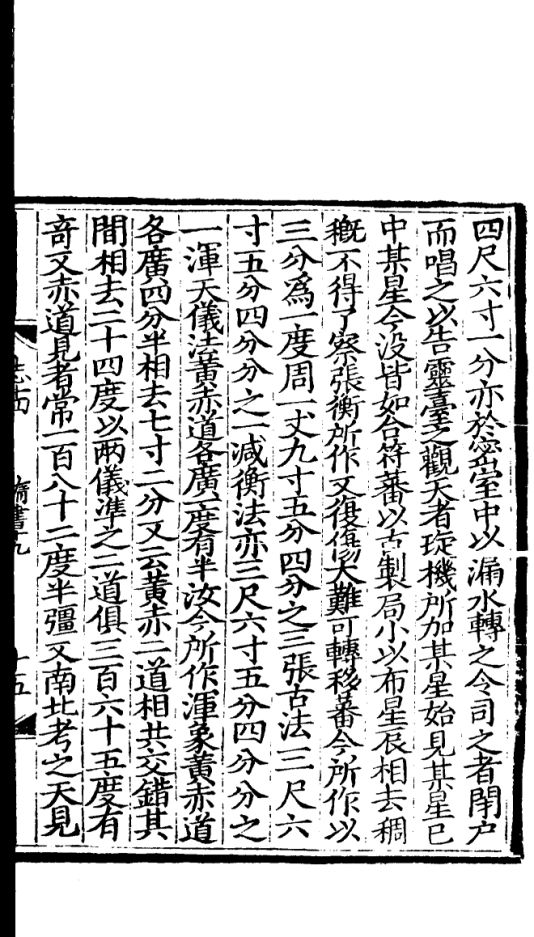 四尺六寸一分亦於密室中以漏水轉之令司之者閉户
而唱之以告靈臺之觀天者琁機所加某星始見某星已
中某星今没皆如合符蕃以古製局小以布星辰相去稠
穊不得了察張衡所作又復傷大難可轉移蕃今所作以
三分爲一度周一丈九寸五分四分之三張古法三尺六
寸五分四分分之一减衡法亦三尺六寸五分四分分之
一渾天儀法黃赤道各廣一度有半汝今所作渾象黃赤道
各廣四分半相去七寸二分又云黃赤二道相共交錯其
間相去二十四度以兩儀準之二道俱三百六十五度有
竒又赤道見者常一百八十二度半彊又南北考之天見
隋書 十五